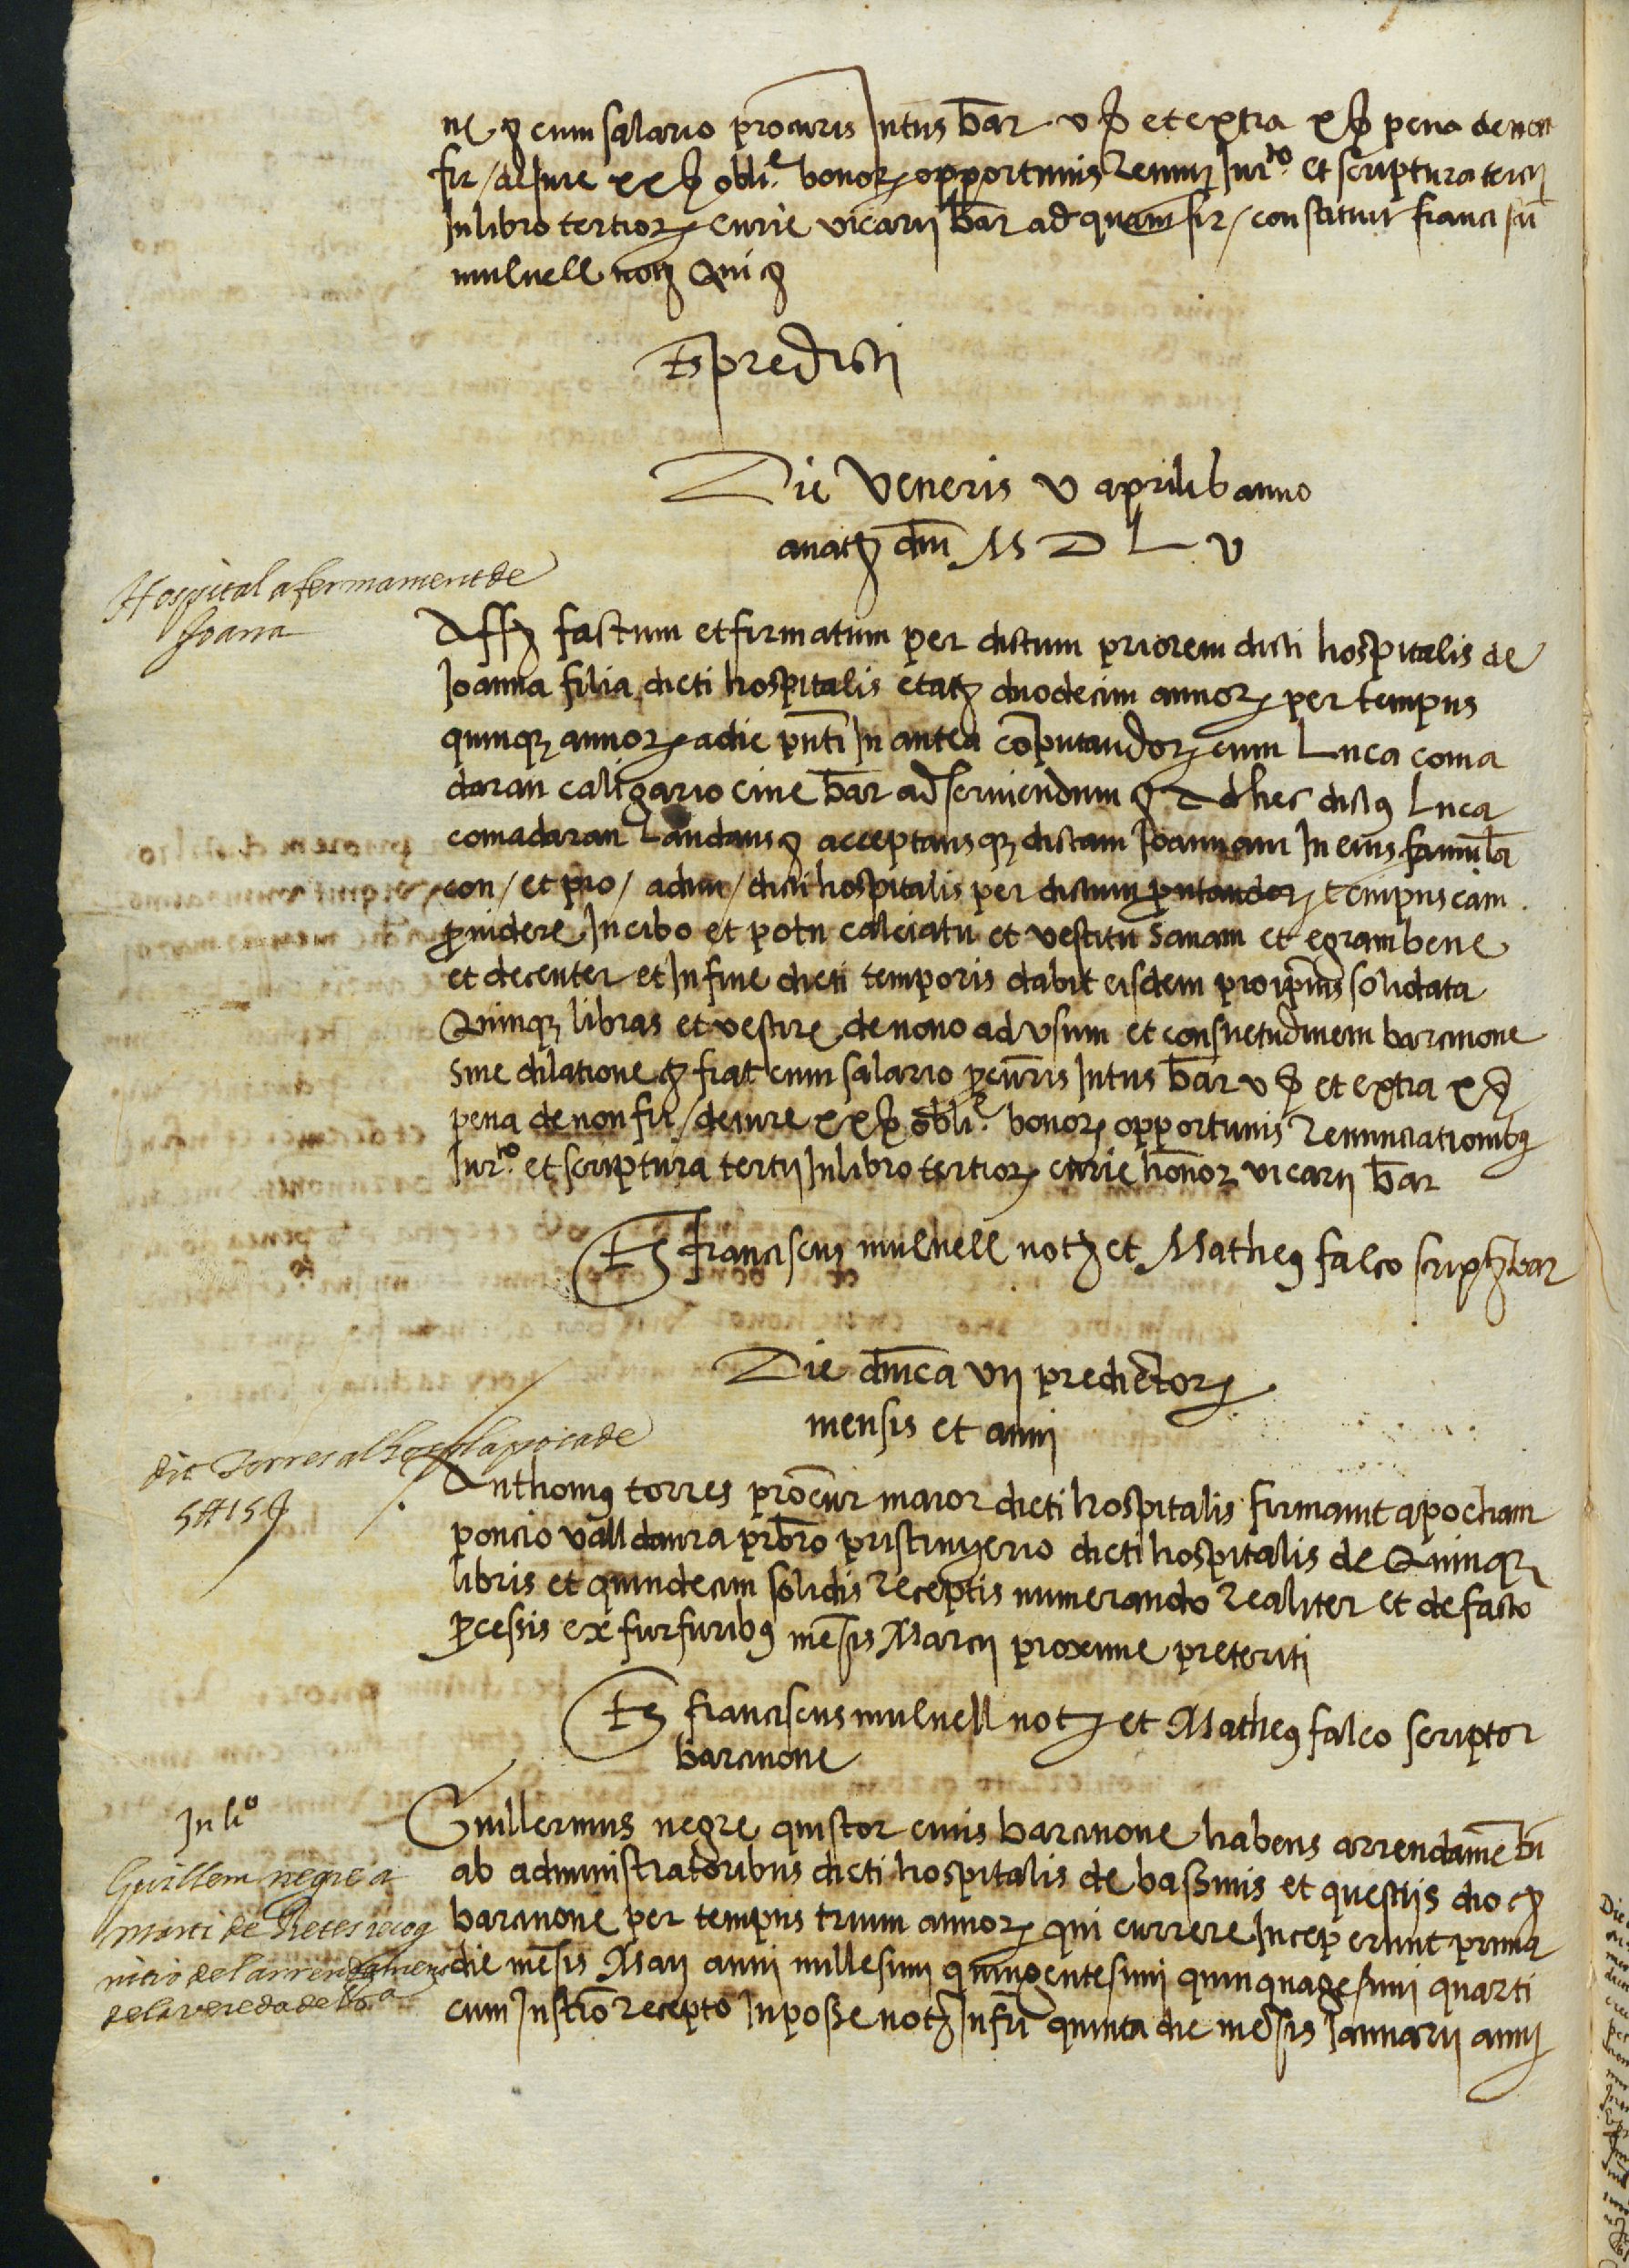 cum salario procuris Intus bar v ß et extra x ß pena de non
fir / de Jure xx ß obli.e bonorꝫ opportunis Renun Jur.to et scriptura tercij
In libro tertiorꝫ curie vicarij bar ad quam fir / constituit
mulnell notꝫ Qui
Ts predicti
Die Veneris v aprilis anno
a natꝫ dni M D L V
Hospital afermament de
Joana
Affꝫ factum et firmatum per dictum priorem dicti hospitalis de
Joanna filia dicti hospitalis etatꝫ duodecim annorꝫ per tempus
quinqꝫ annorꝫ a die pnti In antea computandorꝫ cum Luca coma
daran caligario ciue bar ad seruiendum Ad hec dictus Luca
comadaran Laudans acceptansqꝫ dictam Joannam In eius famula
con / et pro / adm / dicti hospitalis per dictum tempus eam
prouidere In cibo et potu calciatu et vestitu Sanam et egram bene
et decenter et In fine dicti temporis dabit eisdem pro ipius solidata
Quinqꝫ libras et vestire de nouo ad vsum et consuetudinem barcinone
Sine dilatione fiat cum salario pcuris Intus bar v ß et extra x ß
pena de non fir / de iure xx ß obli.e bonorꝫ opportunis Renunciationibus
Jur.to et scriptura tertij In libro tertiorꝫ curie honor vicarij bar
Ts Franciscus mulnell notꝫ et Matheus falco script bar
Die dnica vij predictorꝫ
mensis et anni
dit Torres al
5 ₶ 15 ẞ
Anthonius torres procur maior dicti hospitalis firmauit apocham
poncio valldaura prbro pristinyerio dicti hospitalis de Quinqꝫ
libris et quindecim solidis Receptis numerando Realiter et de facto
pcessis ex furfuribus mesis Marcij proxime preteriti
Ts franciscus mulnell notꝫ et Matheus falco scriptor
barcinone
In li.o
Guillermus negre questor ciuis barcinone habens arrendametu
ab administratoribus dicti hospitalis de bassinis et questijs
Guillem negre a
marti de Retes recog
nicio del arrendament
de la vereda de
barcinone per tempus trium annorꝫ qui currere Inceperunt prima
die mesis Maij anni millesimi quingentesimi quinquagesimi quarti
cum Instro recepto In posse notꝫ Infri quinta die mesis Januarij anni